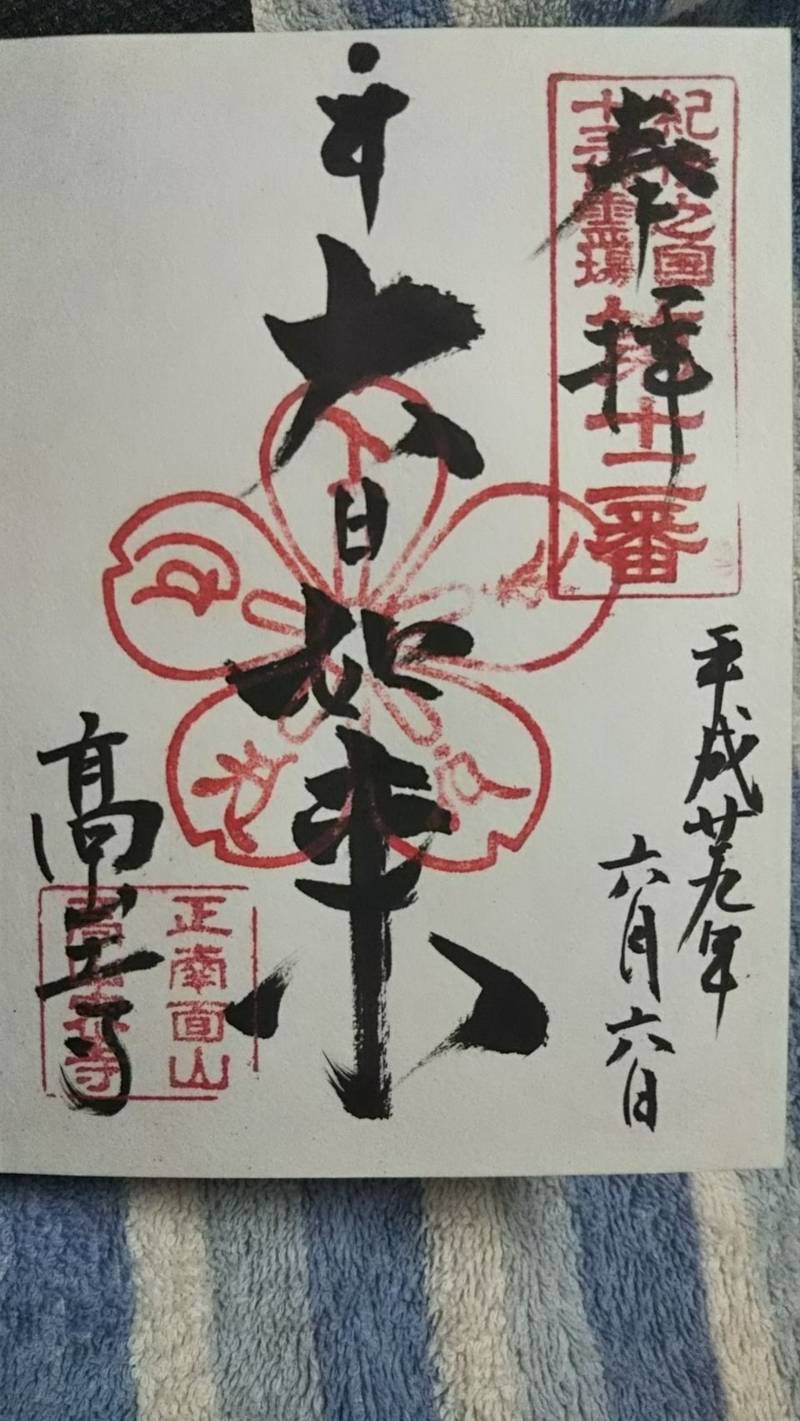 奉拝
紀伊之国
十三仏霊場
第十二番
平成廿九年
六月六日
大日如来
正南面山
高山寺
高山寺